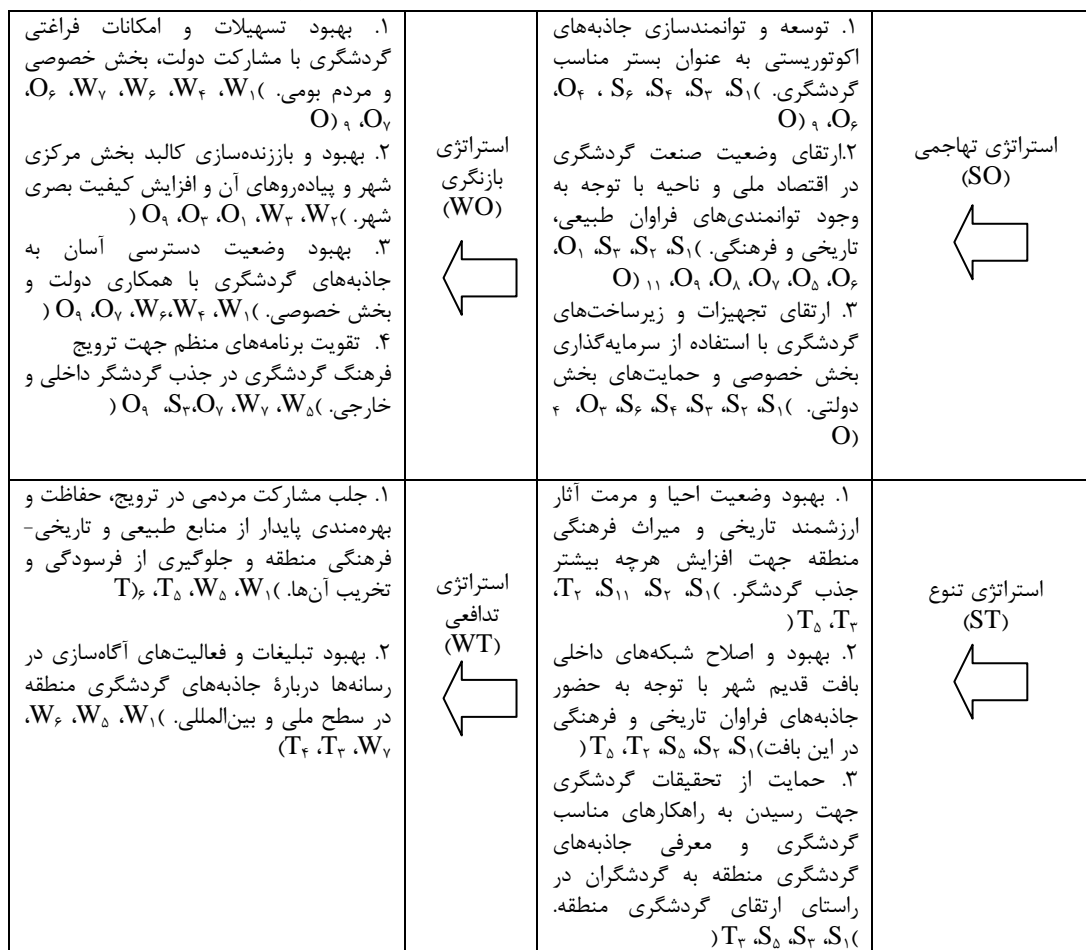 استراتژی تهاجمی
(SO)
۱. توسعه و توانمندسازی جاذبه‌های
اکوتوریستی به عنوان بستر مناسب
گردشگری. )S۱، S۳، S۴، S۶ ، O۴،
O۶، ۹ (O
۲.ارتقای وضعیت صنعت گردشگری
در اقتصاد ملی و ناحیه با توجه به
وجود توانمندی‌های فراوان طبیعی،
تاریخی و فرهنگی. )S۱، S۲، S۳، O۱،
O۶، O۵، O۷، O۸، O۹، ۱۱ (O
۳. ارتقای تجهیزات و زیرساخت‌های
گردشگری با استفاده از سرمایه‌گذاری
بخش خصوصی و حمایت‌های بخش
دولتی. )S۱، S۲، S۳، S۴، S۶، O۳، ۴
(O
استراتژی
بازنگری
(WO)
۱. بهبود تسهیلات و امکانات فراغتی
گردشگری با مشارکت دولت، بخش خصوصی
و مردم بومی. )W۱، W۴، W۶، W۷، O۶،
O۷، ۹ (O
۲. بهبود و باززنده‌سازی کالبد بخش مرکزی
شهر و پیاده‌روهای آن و افزایش کیفیت بصری
شهر. )W۲، W۳، O۱، O۳، O۹ (
۳. بهبود وضعیت دسترسی آسان به
جاذبه‌های گردشگری با همکاری دولت و
بخش خصوصی. )W۱، W۴،W۶، O۷، O۹ (
۴. تقویت برنامه‌های منظم جهت ترویج
فرهنگ گردشگری در جذب گردشگر داخلی و
خارجی. )W۵، W۷، S۳،O۷، O۹ (
استراتژی تنوع
(ST)
۱. بهبود وضعیت احیا و مرمت آثار
ارزشمند تاریخی و میراث فرهنگی
منطقه جهت افزایش هرچه بیشتر
جذب گردشگر. )S۱، S۲، S۱۱، T۲،
T۳، T۵ (
۲. بهبود و اصلاح شبکه‌های داخلی
بافت قدیم شهر با توجه به حضور
جاذبه‌های فراوان تاریخی و فرهنگی
در این بافت)S۱، S۲، S۵، T۲، T۵ (
۳. حمایت از تحقیقات گردشگری
جهت رسیدن به راهکارهای مناسب
گردشگری و معرفی جاذبه‌های
گردشگری منطقه به گردشگران در
راستای ارتقای گردشگری منطقه.
)S۱، S۳، S۵، T۳ (
استراتژی
تدافعی
(WT)
۱. جلب مشارکت مردمی در ترویج، حفاظت و
بهره‌مندی پایدار از منابع طبیعی و تاریخی-
فرهنگی منطقه و جلوگیری از فرسودگی و
تخریب آن‌ها. )W۱، W۵، T۵، ۶(T
۲. بهبود تبلیغات و فعالیت‌های آگاه‌سازی در
رسانه‌ها دربارهٔ جاذبه‌های گردشگری منطقه
در سطح ملی و بین‌المللی. )W۱، W۵، W۶،
W۷، T۳، T۴)